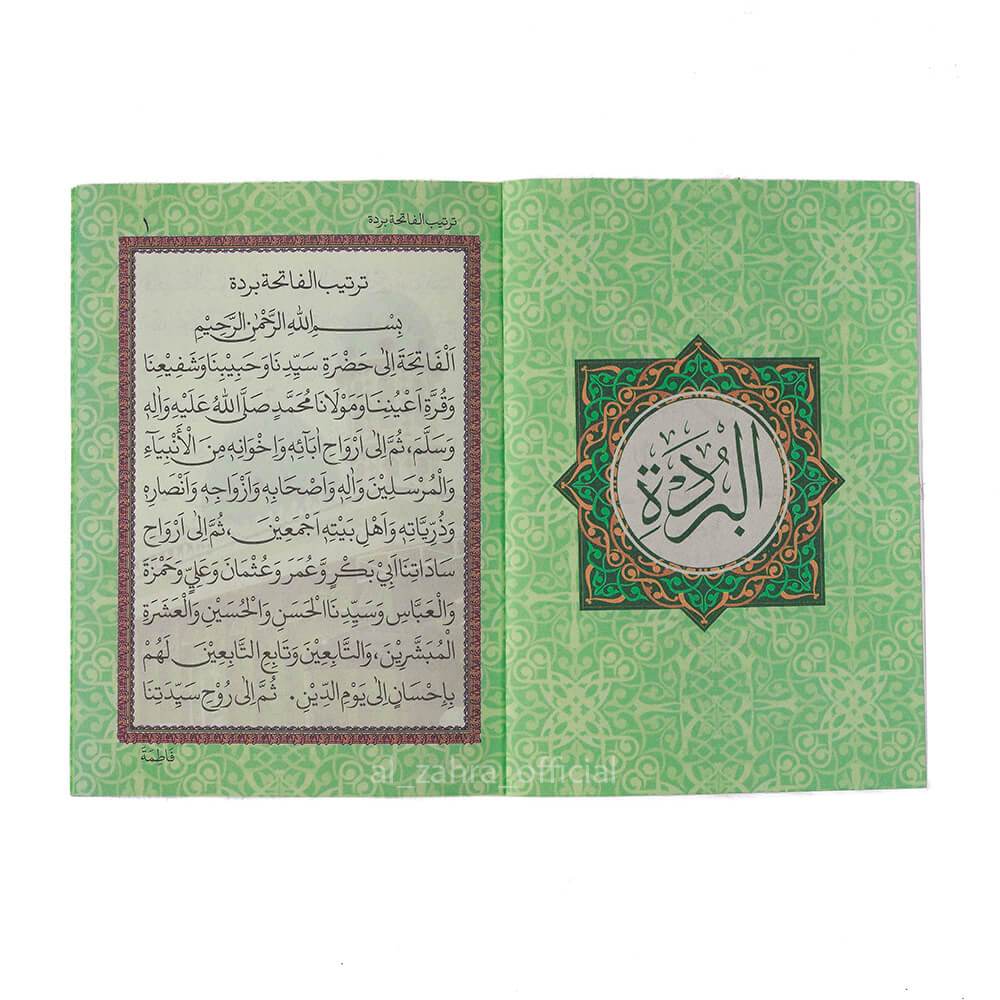 البردة
ترتيب الفاتحة بردة
١
ترتيب الفاتحة بردة
بِسْمِ اللهِ الرَّحْمٰنِ الرَّحِيْمِ
اَلْفَاتِحَةَ اِلٰى حَضْرَةِ سَيِّدِنَا وَحَبِيْبِنَا وَشَفِيْعِنَا
وَقُرَّةِ اَعْيُنِنَا وَمَوْلَانَا مُحَمَّدٍ صَلَّى اللهُ عَلَيْهِ وَاٰلِهٖ
وَسَلَّمَ، ثُمَّ اِلٰى اَرْوَاحِ اٰبَآئِهٖ وَاِخْوَانِهٖ مِنَ الْأَنْبِيَآءِ
وَالْمُرْسَلِيْنَ وَاٰلِهٖ وَاَصْحَابِهٖ وَاَزْوَاجِهٖ وَاَنْصَارِهٖ
وَذُرِّيَّاتِهٖ وَاَهْلِ بَيْتِهٖ اَجْمَعِيْنَ، ثُمَّ اِلٰى اَرْوَاحِ
سَادَاتِنَا اَبِيْ بَكْرٍ وَّعُمَرَ وَعُثْمَانَ وَعَلِيٍّ وَحَمْزَةَ
وَالْعَبَّاسِ وَسَيِّدِنَا الْحَسَنِ وَالْحُسَيْنِ وَالْعَشَرَةِ
الْمُبَشَّرِيْنَ، وَالتَّابِعِيْنَ وَتَابِعِ التَّابِعِيْنَ لَهُمْ
بِاِحْسَانٍ اِلٰى يَوْمِ الدِّيْنِ. ثُمَّ اِلٰى رُوْحِ سَيِّدَتِنَا
فَاطِمَةَ
al_zahra_official